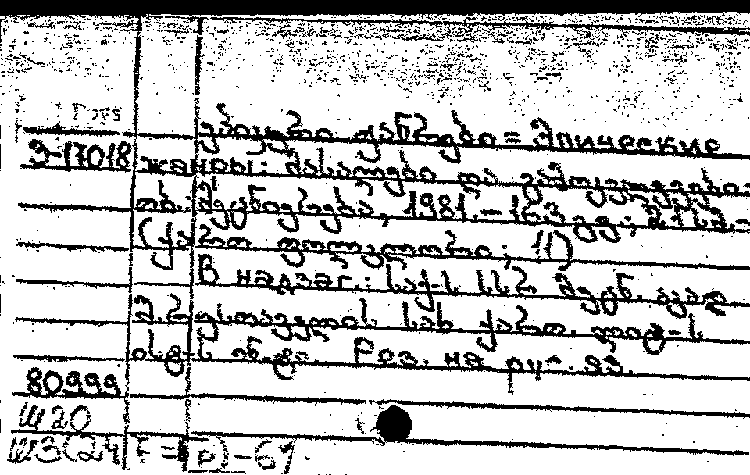 ეპიკური ჟანრები = Эпические
Э-17018 жанры: მასალები და გამოკვლევები.
თბ.: მეცნიერება, 1981. – 163 გვ.; 21 სმ. –
(ქართ. ფოლკლორი; 11)
В надзаг.: საქ-ს სსრ მეცნ. აკად.
შ. რუსთაველის სახ. ქართ. ლიტ-ს
ისტ-ს ინ-ტი. Рез. на рус. яз.
80999
Ш20
Ш3(24